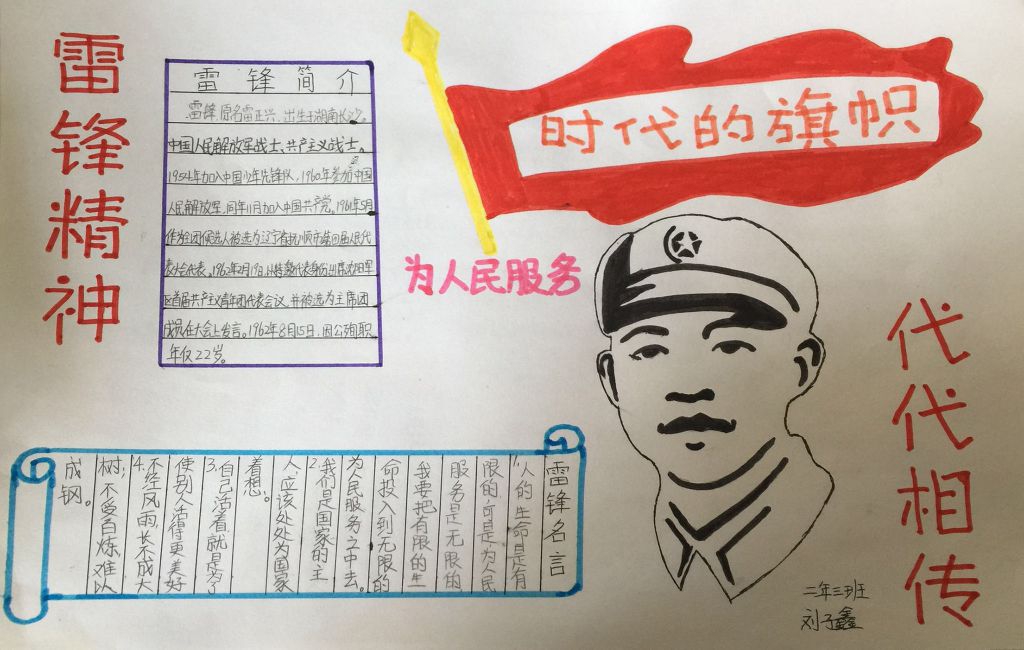 雷锋精神
雷锋简介
雷锋,原名雷正兴,出生于湖南长沙。
中国人民解放军战士、共产主义战士。
1954年加入中国少年先锋队,1960年参加中国
人民解放军,同年11月加入中国共产党。1961年5月
作为全团候选人被选为辽宁省抚顺市第四届人民代
表大会代表。1962年2月19日,以特邀代表身份出席沈阳军
区首届共产主义青年团代表会议,并被选为主席团
成员在大会上发言。1962年8月15日,因公殉职
年仅22岁。
时代的旗帜
为人民服务
代代相传
雷锋名言
1.人的生命是有
限的,可是为人民
服务是无限的
我要把有限的生
命投入到无限的
为人民服务之中去。
2.我们是国家的主
人,应该处处为国家
着想。
3.自己活着,就是为了
使别人活得更美好
4.不经风雨,长不成大
树;不受百炼,难以
成钢。
二年三班
刘子鑫